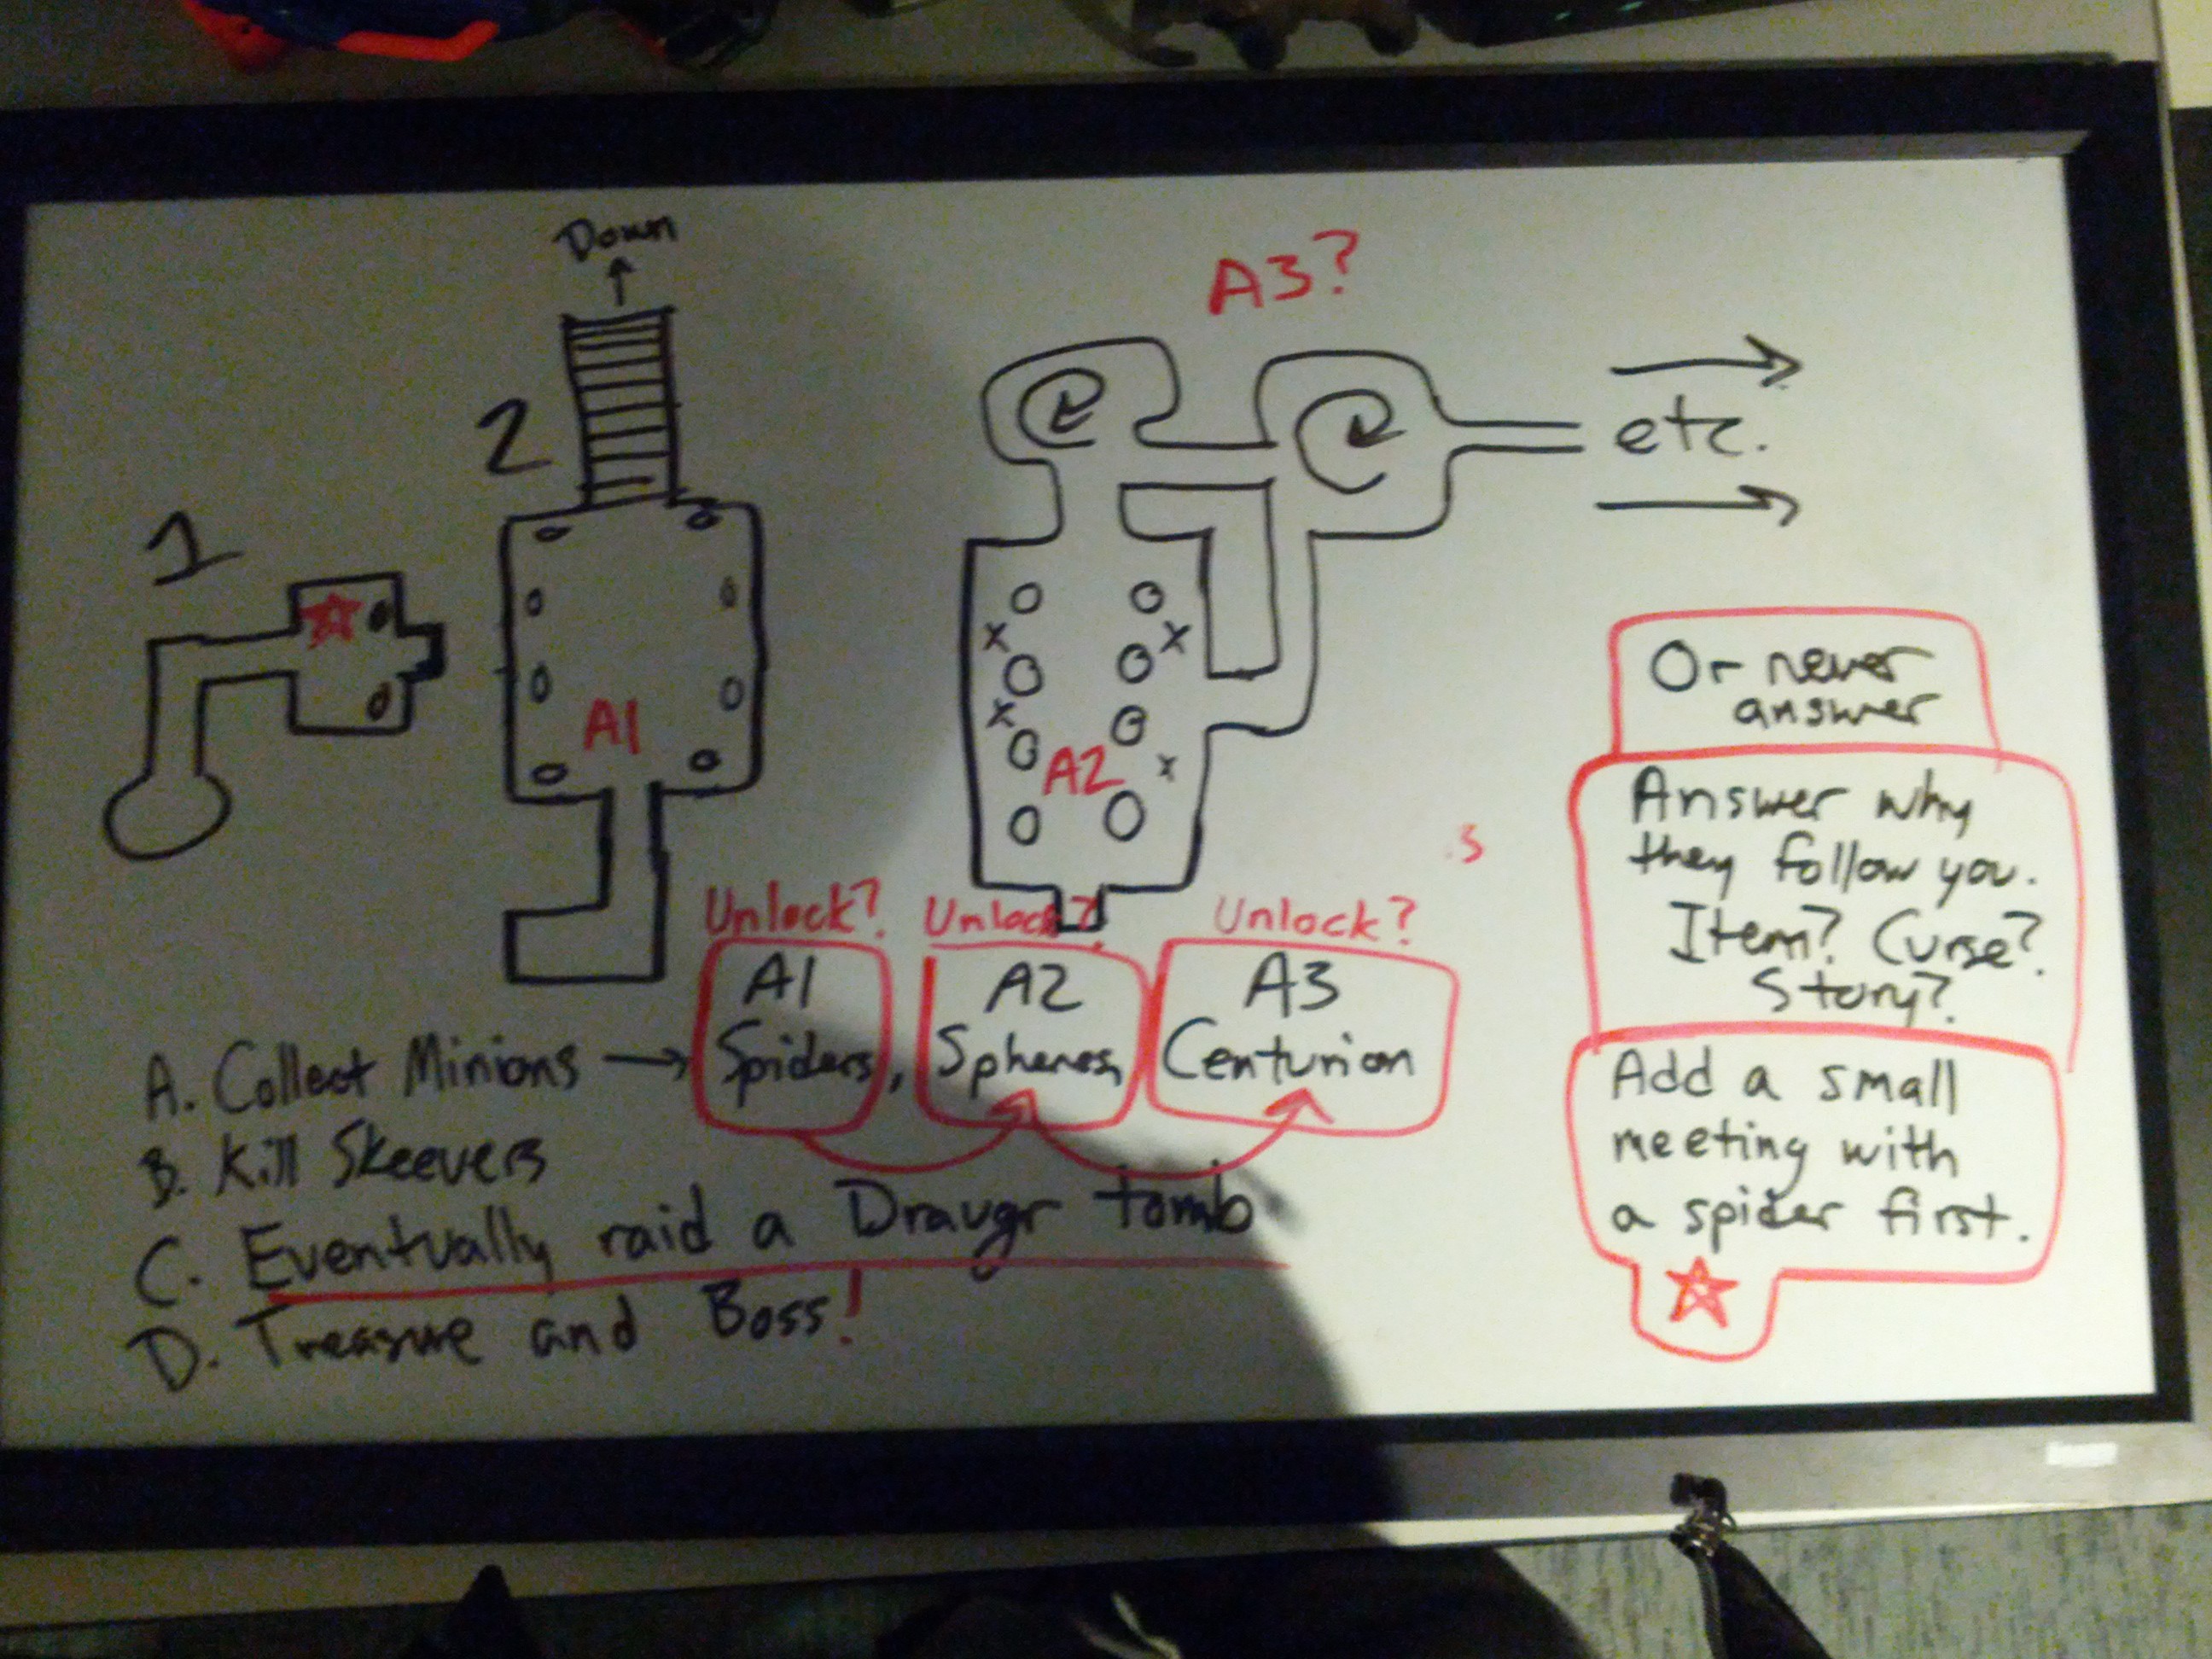 Down
A3?
2
etc.
1
A1
A2
Or never
answer
Answer why
they follow you.
Item? Curse?
Story?
Add a small
meeting with
a spider first.
s
Unlock? Unlock? Unlock?
A1 A2 A3
A. Collect Minions → Spiders, Spheres, Centurion
B. Kill Skeevers
C. Eventually raid a Draugr tomb
D. Treasure and Boss!